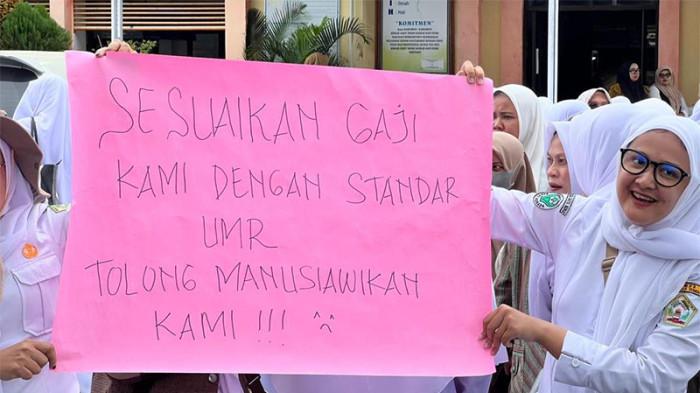 SESUAIKAN GAJI
KAMI DENGAN STANDAR
UMR
TOLONG MANUSIAWIKAN
KAMI !!!
"KOMITMEN"